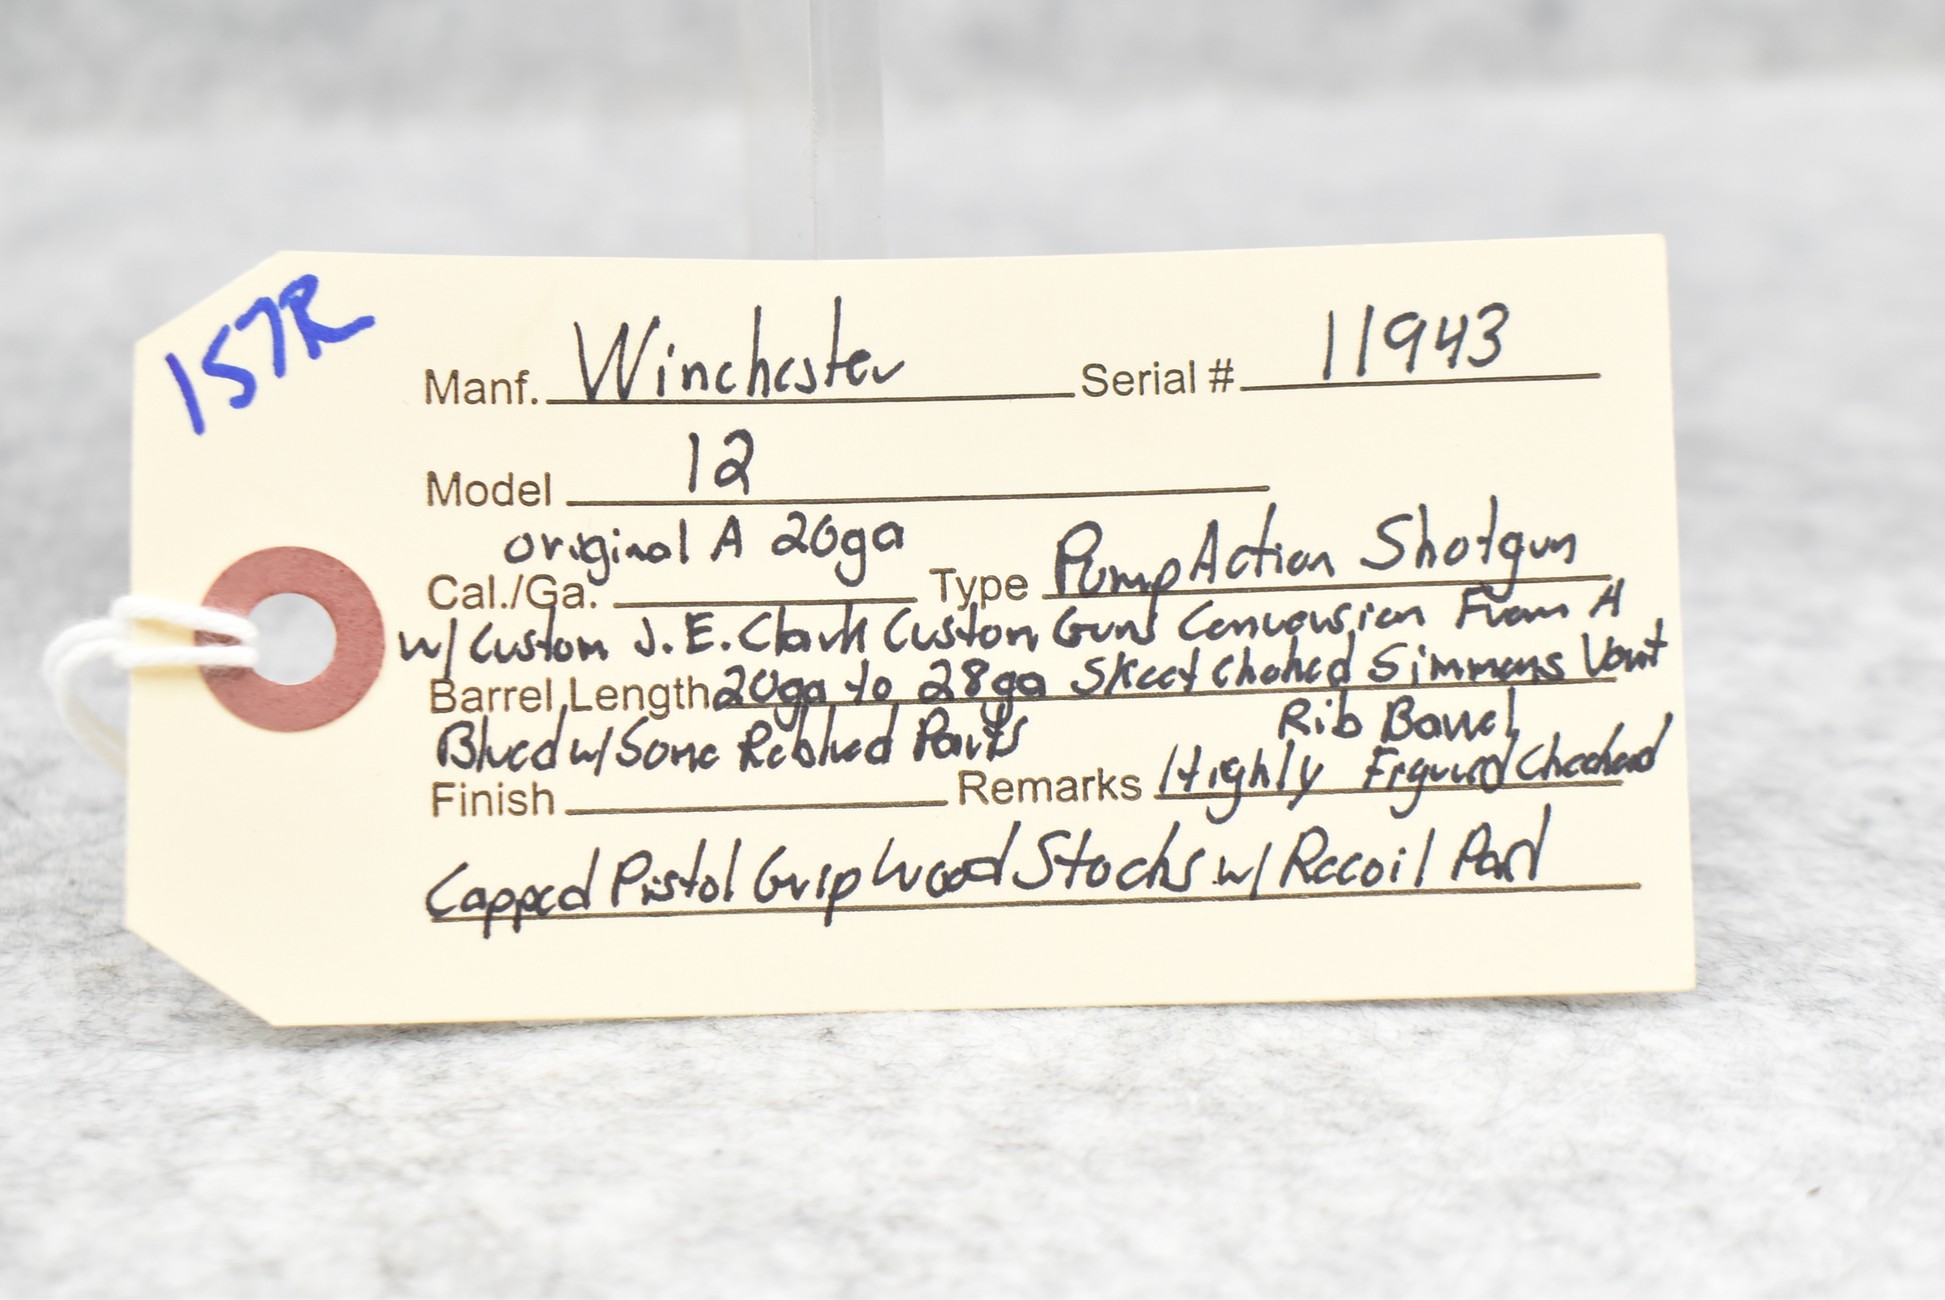 157R
Manf. Winchester Serial # 11943
Model 12
original A 20ga
Cal./Ga. Type Pump Action Shotgun
w/ Custom J.E. Clark Custom Guns Conversion From A
Barrel Length 20ga to 28ga Skeet Choked Simmons Vent
Rib Barrel
Blued w/ Some Reblued Parts
Finish Remarks Highly Figured Checkered
Capped Pistol Grip Wood Stocks w/ Recoil Pad